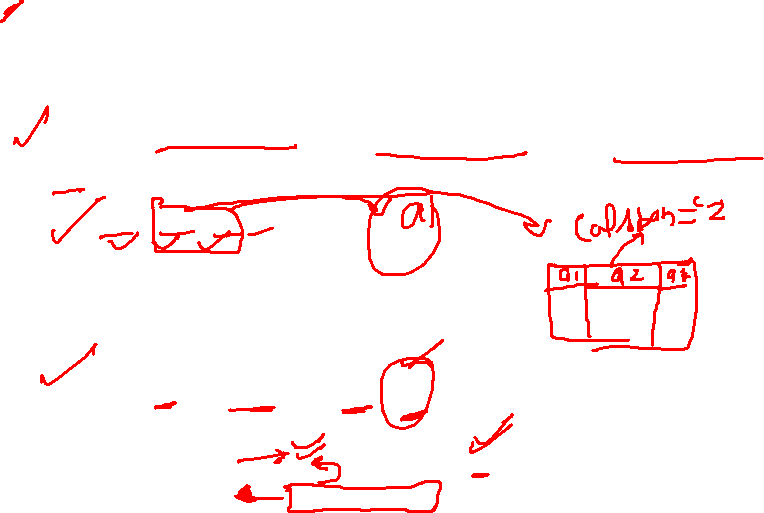 a
colspan="2
a1 a2 a3